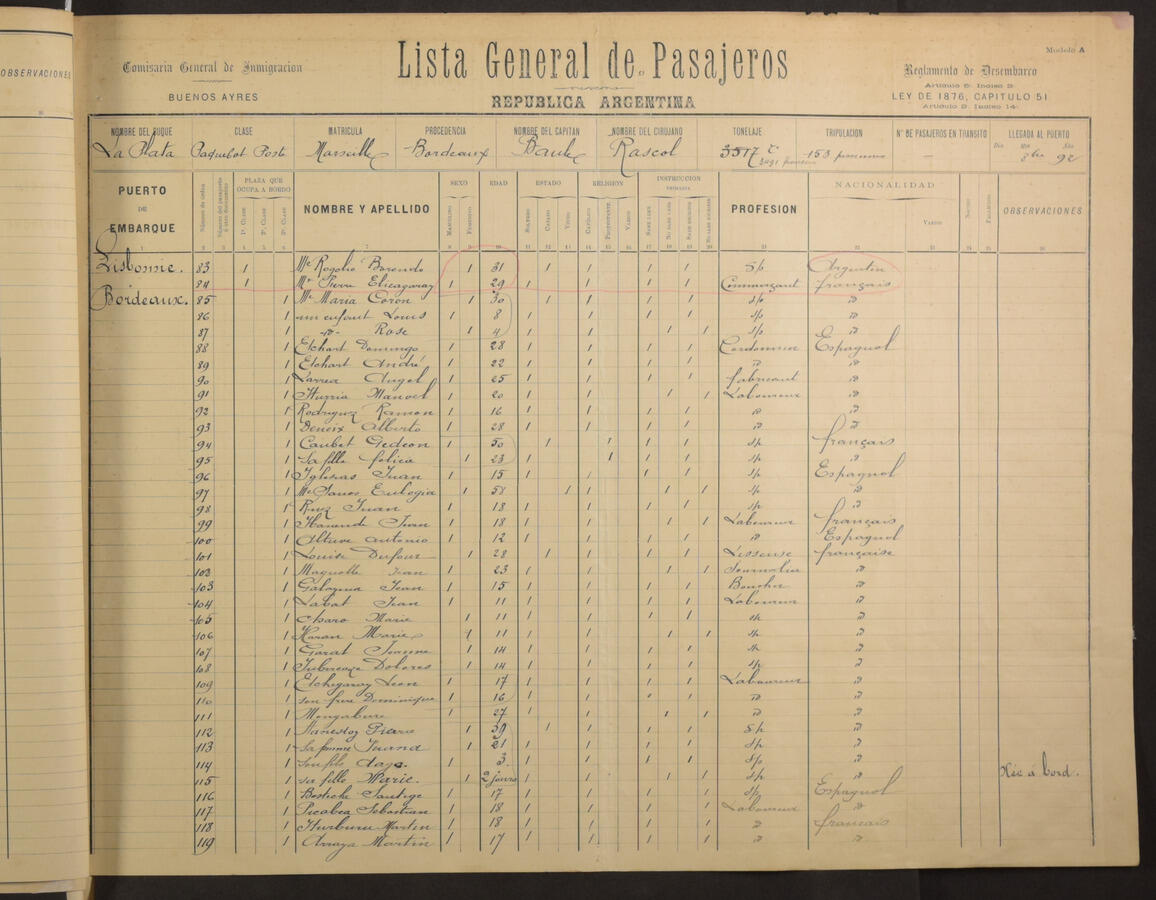 OBSERVACIONES
Comisaria General de Inmigracion
BUENOS AYRES
Lista General de Pasajeros
REPUBLICA ARGENTINA
Modelo A
Reglamento de Desembarco
Articulo 5º Inciso 3º
LEY DE 1876, CAPITULO 51
Articulo 2º Inciso 14º
NOMBRE DEL BUQUE CLASE MATRICULA PROCEDENCIA NOMBRE DEL CAPITAN NOMBRE DEL CIRUJANO TONELAJE TRIPULACION Nº DE PASAJEROS EN TRANSITO LLEGADA AL PUERTO
La Plata Paquebot Poste Marseille Bordeaux Baule Rascol 3517 153 personnes 8bre 92
PUERTO DE EMBARQUE
PLAZA QUE OCUPA A BORDO
1ª CLASE 2ª CLASE 3ª CLASE
NOMBRE Y APELLIDO
SEXO EDAD ESTADO RELIGION INSTRUCCION PRIMARIA
MASCULINO FEMENINO SOLTERO CASADO VIUDO CATOLICO PROTESTANTE VARIOS SABE LEER NO SABE LEER SABE ESCRIBIR NO SABE ESCRIBIR
PROFESION
NACIONALIDAD
VARIOS
OBSERVACIONES
Lisbonne. 83 1 Me Rogelio 1 31 1 1 1 1 S/p Argentin
84 1 Mr Pierre Elicagaray 1 29 1 1 1 1 Commerçant français
Bordeaux. 85 1 Me Maria Coron 1 30 1 1 1 1 s/p "
86 1 un enfant Louis 1 8 1 1 1 1 s/p "
87 1 -"- Rose 1 4 1 1 1 1 s/p "
88 1 Etchart Domingo 1 28 1 1 1 1 Cordonnier Espagnol
89 1 Etchart André 1 22 1 1 1 1 " "
90 1 Larrea Angel 1 25 1 1 1 1 fabricant "
91 1 Iturria Manuel 1 20 1 1 1 1 Laboureur "
92 1 Rodriguez Ramon 1 16 1 1 1 1 " "
93 1 Deneix Alberto 1 28 1 1 1 1 " "
94 1 Caubet Gedeon 1 50 1 1 1 1 s/p français
95 1 Sa fille felicia 1 23 1 1 1 1 s/p "
96 1 Iglesias Juan 1 15 1 1 1 1 s/p Espagnol
97 1 Me Eulogia 1 58 1 1 1 1 s/p "
98 1 Ruiz Juan 1 13 1 1 1 1 s/p "
99 1 Juan 1 18 1 1 1 1 Laboureur français
100 1 Altuve Antonio 1 12 1 1 1 1 " Espagnol
101 1 Louise Dufour 1 28 1 1 1 1 Lisseuse française
102 1 Jean 1 23 1 1 1 1 Journalier "
103 1 Jean 1 15 1 1 1 1 Boucher "
104 1 Labat Jean 1 11 1 1 1 1 Laboureur "
105 1 Marie 1 11 1 1 1 1 s/p "
106 1 Haran Marie 1 11 1 1 1 1 s/p "
107 1 Garat Jeanne 1 14 1 1 1 1 s/p "
108 1 Dolores 1 14 1 1 1 1 s/p "
109 1 Etchegaray Leon 1 17 1 1 1 1 Laboureur "
110 1 son frère Dominique 1 16 1 1 1 1 " "
111 1 Mongabure 1 27 1 1 1 1 " "
112 1 Pierre 1 39 1 1 1 1 S/p "
113 1 Sa femme Juana 1 21 1 1 1 1 s/p "
114 1 son fils 1 3 1 1 1 1 S/p "
115 1 sa fille Marie. 1 2 jours 1 1 1 1 s/p " Née à bord.
116 1 Santiago 1 17 1 1 1 1 s/p Espagnol
117 1 Picabea Sebastian 1 18 1 1 1 1 Laboureur "
118 1 Iturburu Martin 1 18 1 1 1 1 " français
119 1 Arraya Martin 1 17 1 1 1 1 " "